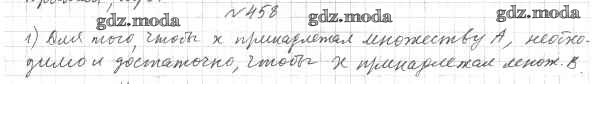 №458
gdz.moda gdz.moda gdz.moda
1) Для того, чтобы х принадлежал множеству А, необхо-
димо и достаточно, чтобы х принадлежал множ. В.